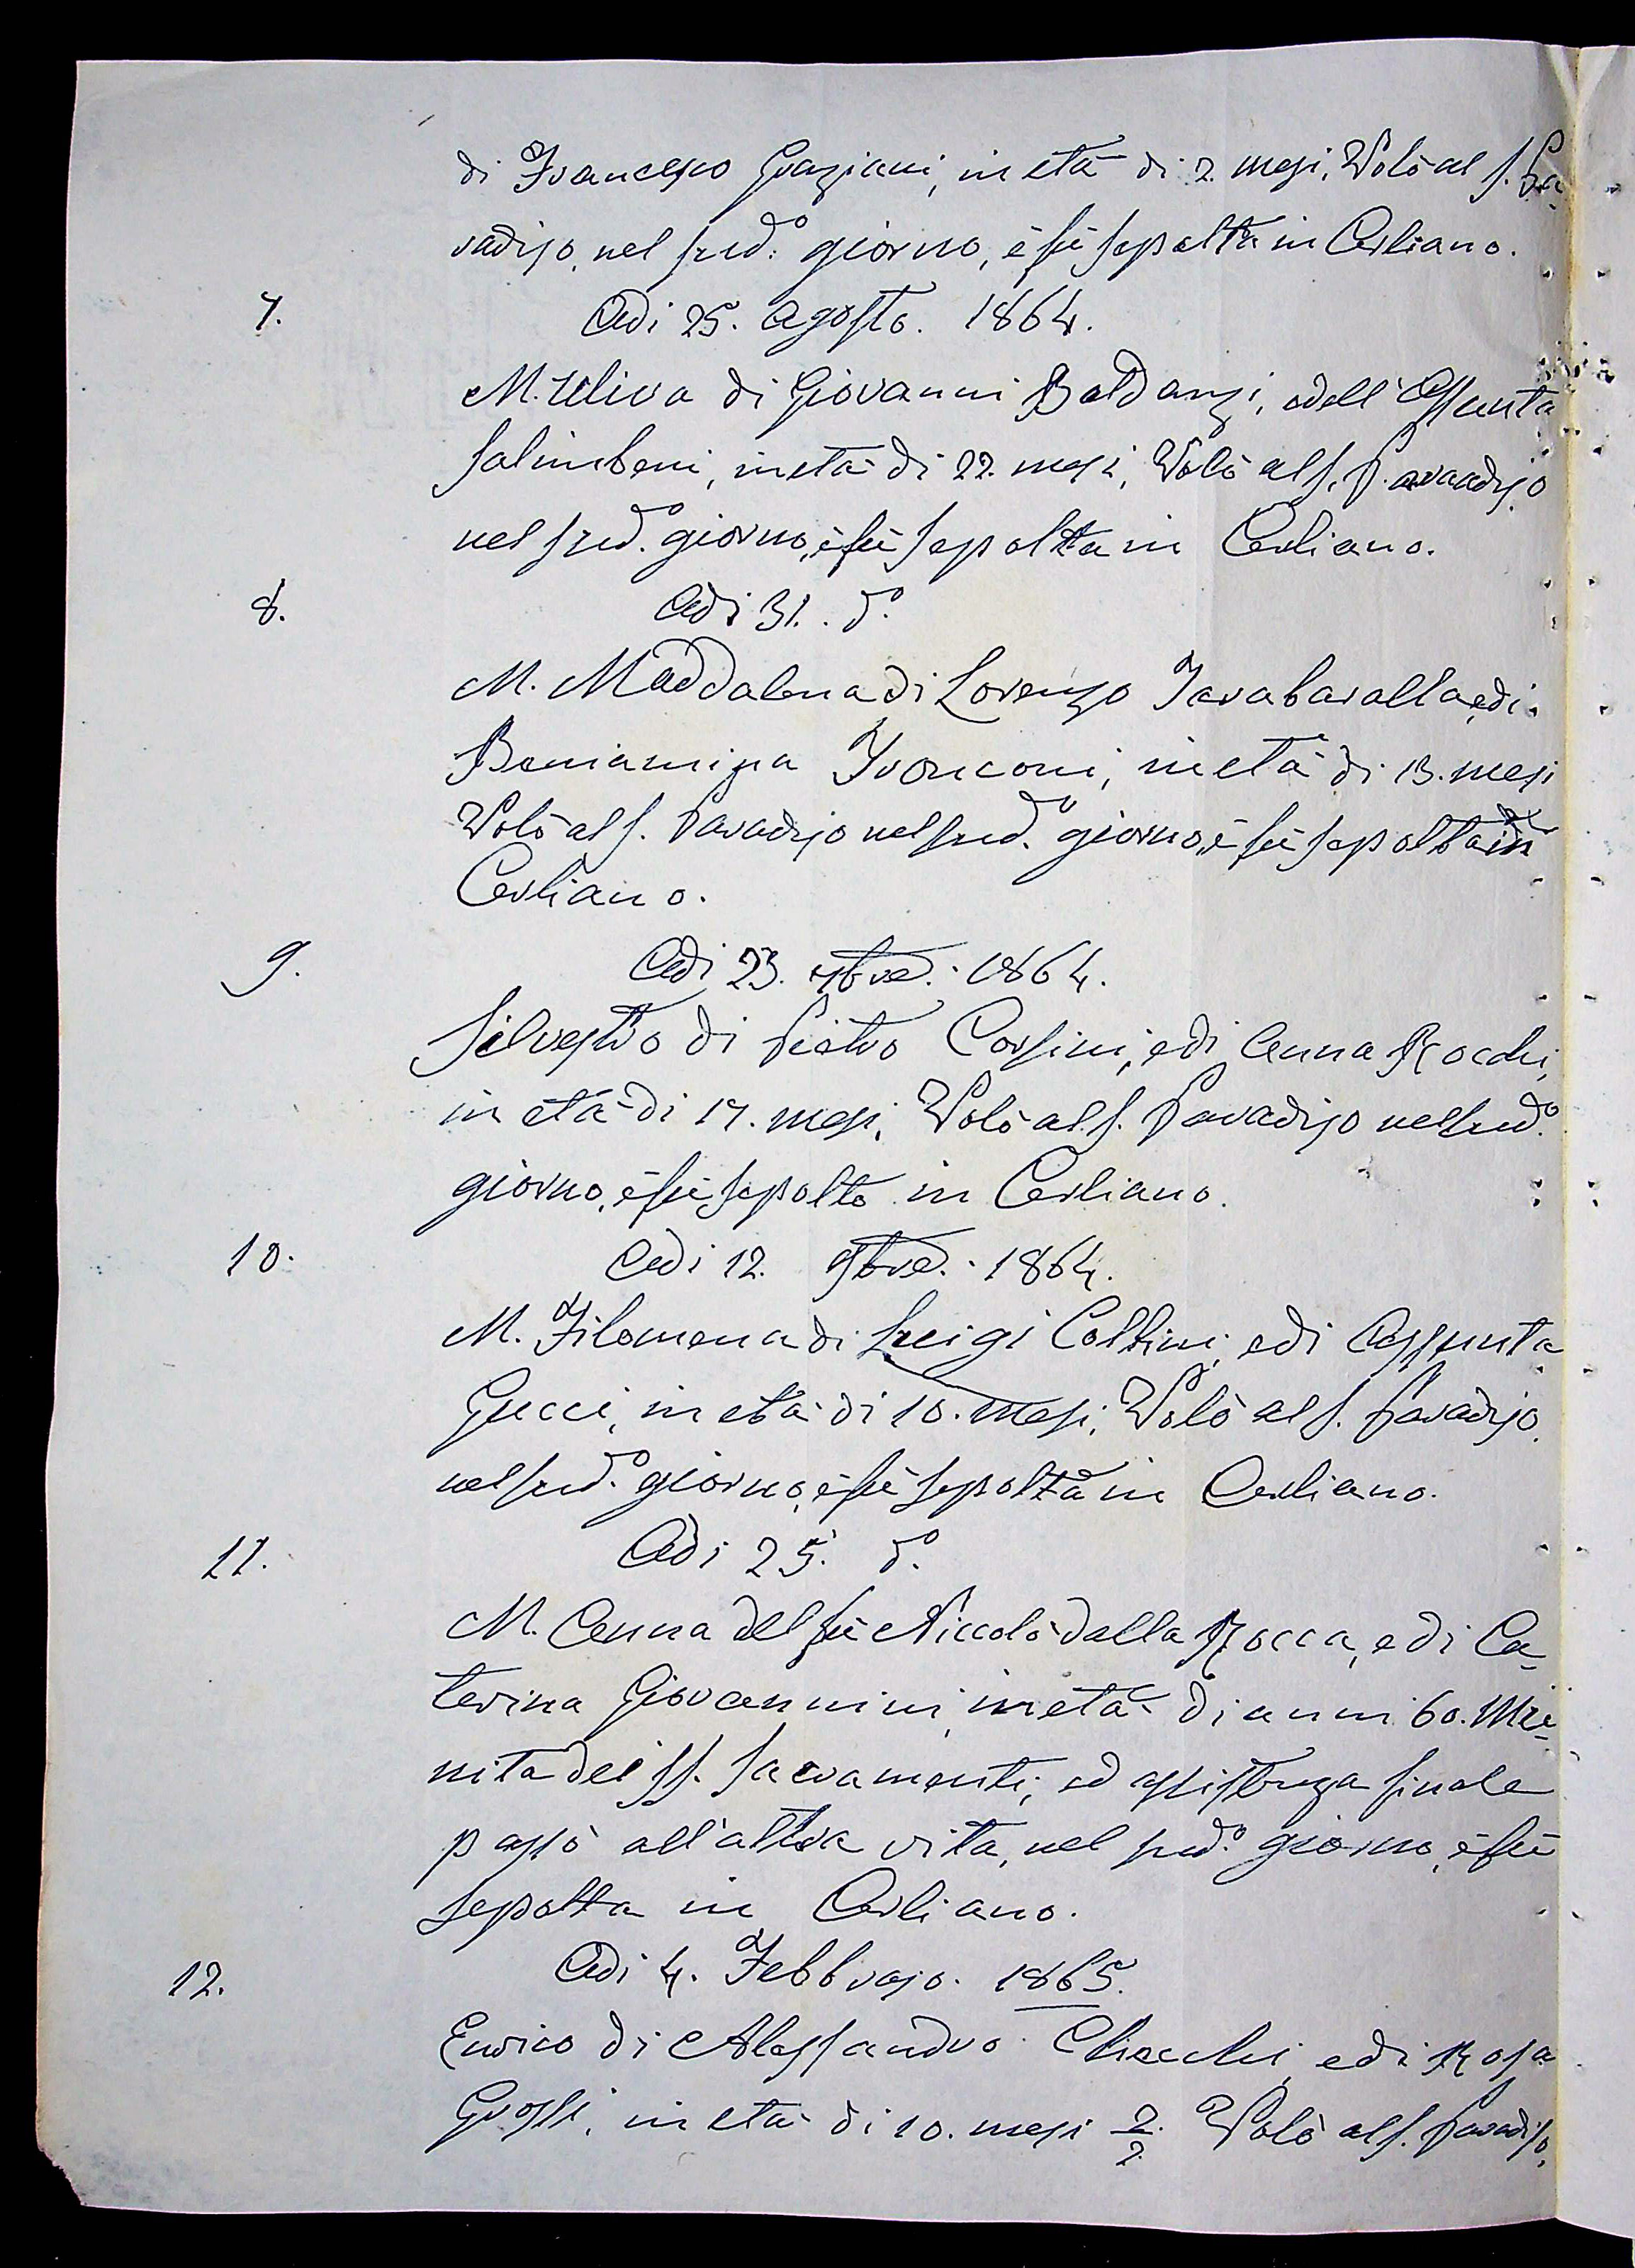 di Francesco Graziani, in età di 2. mesi, Volò al S. Pa-
radiso, nel sud.º giorno, è fù sepolta in Cerliano.
7. Adi 25. Agosto. 1864.
M. Uliva di Giovanni Baldanzi, e dell' Assunta
Salimbeni, in età di 22. mesi, Volò al S. Paradiso
nel sud.º giorno, è fù sepolta in Cerliano.
8. Adi 31. d.º
M. Maddalena di Lorenzo Tarabaralla, e di
Beniamina Tronconi, in età di 13. mesi
Volò al S. Paradiso nel sud.º giorno, è fù sepolta in
Cerliano.
9. Adi 23. 7bre. 1864.
Silvestro di Pietro Corsini, e di Anna Rocchi,
in età di 17. mesi, Volò al S. Paradiso nel sud.º
giorno, è fù sepolto in Cerliano.
10. Adi 12. 9bre. 1864.
M. Filomena di Luigi Collini, e di Assunta
Gucci, in età di 10. mesi, Volò al S. Paradiso,
nel sud.º giorno, è fù sepolta in Cerliano.
11. Adi 25. d.º
M. Anna del fù Niccolò dalla Rocca, e di Ca-
terina Giovannini, in età di anni 60. Mu-
nita dei SS. Sacramenti, ed assistenza finale
passò all'altra vita, nel sud.º giorno, è fù
sepolta in Cerliano.
12. Adi 4. Febbrajo. 1865.
Enrico di Alessandro Chiocchi, e di Rosa
Grossi, in età di 10. mesi Volò al S. Paradiso,